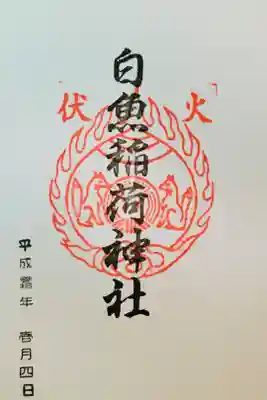 火伏
白魚稲荷神社
平成 年 壱月四日